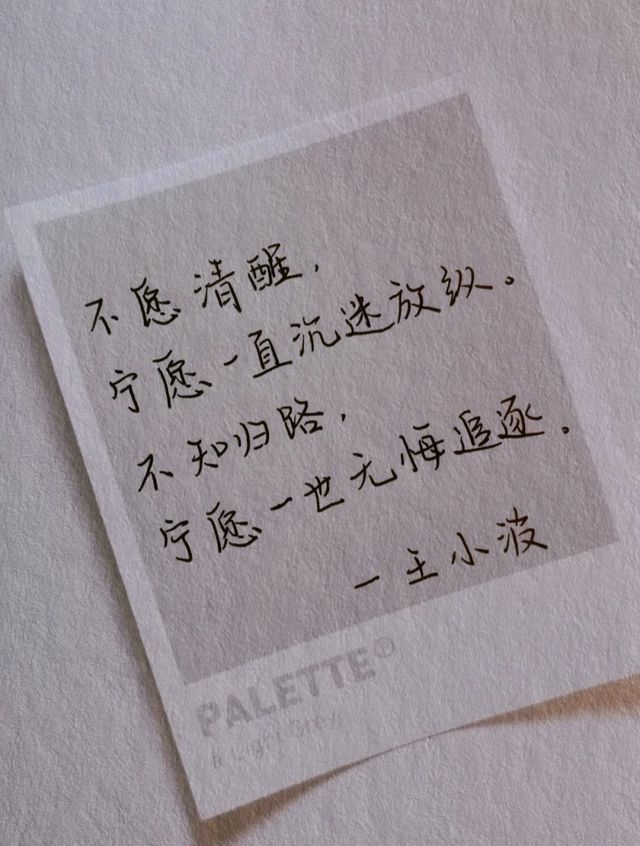 不愿清醒，
宁愿一直沉迷放纵。
不知归路，
宁愿一世无悔追逐。
一王小波
PALETTE®
# Light Grey